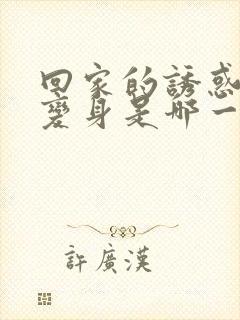 回家的誘惑
變身是哪一
許廣漢